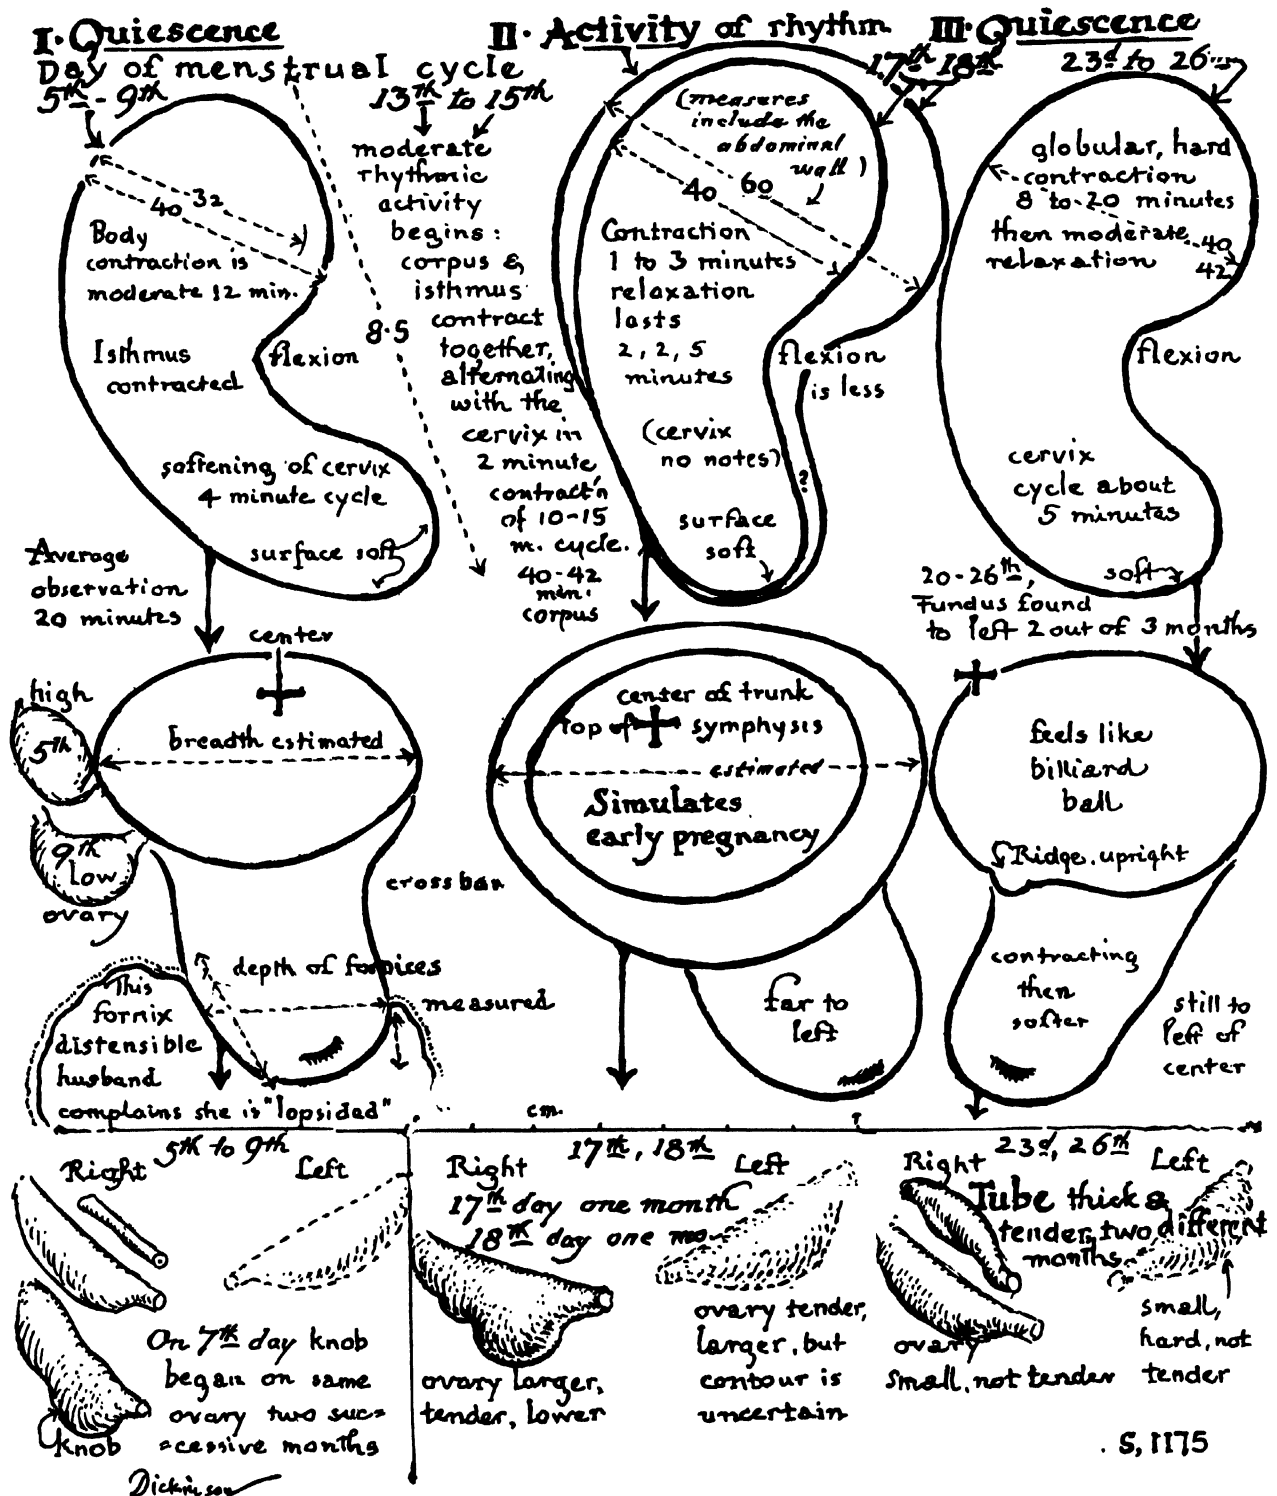 I. Quiescence
Day of menstrual cycle
5th - 9th
32
40
Body
contraction is
moderate 12 min.
Isthmus
contracted
flexion
softening of cervix
4 minute cycle
surface soft
Average
observation
20 minutes
8.5
13th to 15th
moderate
rhythmic
activity
begins:
corpus &
isthmus
contract
together,
alternating
with the
cervix in
2 minute
contract'n
of 10-15
m. cycle.
40-42
min.
corpus
II. Activity of rhythm
17th 18th
(measures
include the
abdominal
wall)
60
40
Contraction
1 to 3 minutes
relaxation
lasts
2, 2, 5
minutes
flexion
is less
(cervix
no notes)
?
surface
soft
III. Quiescence
23d to 26
globular, hard
contraction
8 to 20 minutes
then moderate
relaxation
40
42
flexion
cervix
cycle about
5 minutes
soft
20-26th,
Fundus found
to left 2 out of 3 months
center
high
5th
breadth estimated
9th
low
ovary
cross bar
depth of fornices
measured
This
fornix
distensible
husband
complains she is "lopsided"
center of trunk
Top of symphysis
estimated
Simulates
early pregnancy
far to
left
feels like
billiard
ball
Ridge, upright
contracting
then
softer
still to
left of
center
cm.
5th to 9th
Right
Left
On 7th day knob
began on same
ovary two suc=
=cessive months
knob
Dickinson
17th, 18th
Right
Left
17th day one month
18th day one mo
ovary larger,
tender, lower
ovary tender,
larger, but
contour is
uncertain
23d, 26th
Right
Left
Tube thick &
tender, two different
months
ovary
small, not tender
small,
hard, not
tender
S, 1175